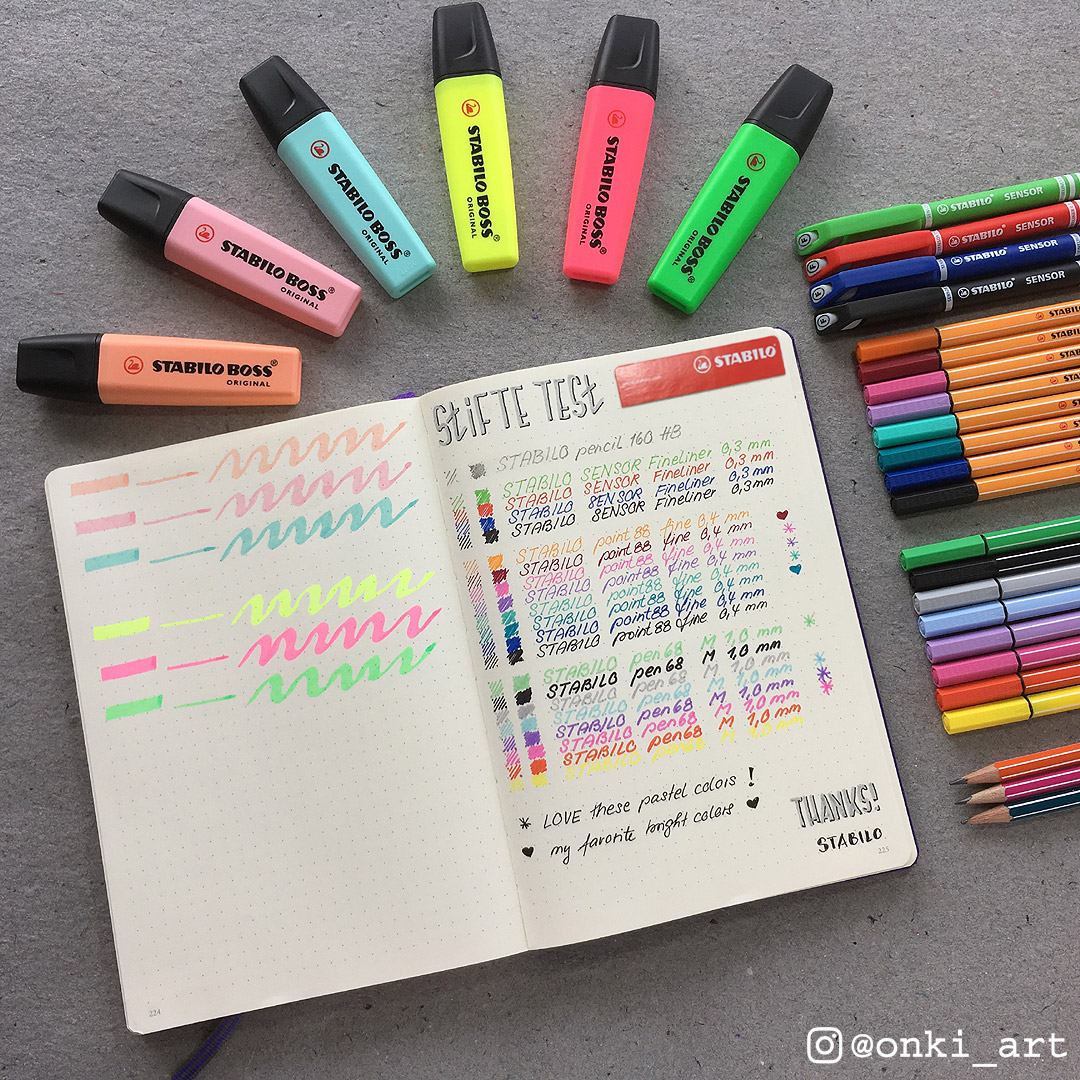 STABILO BOSS®
ORIGINAL
STABILO BOSS®
ORIGINAL
STABILO BOSS®
ORIGINAL
STABILO BOSS®
ORIGINAL
STABILO BOSS®
ORIGINAL
STABILO BOSS®
ORIGINAL
STABILO SENSOR
STABILO SENSOR
STABILO SENSOR
STABILO SENSOR
STABILO
STIFTE TEST
STABILO pencil 160 HB
STABILO SENSOR Fineliner 0,3 mm
STABILO SENSOR Fineliner 0,3 mm.
STABILO SENSOR Fineliner 0,3 mm
STABILO SENSOR Fineliner 0,3mm
STABILO point88 fine 0,4 mm.
STABILO point88 fine 0,4 mm
STABILO point88 fine 0,4 mm
STABILO point88 fine 0,4 mm
STABILO point88 fine 0,4 mm
STABILO point88 fine 0,4 mm
STABILO point88 fine 0,4 mm
STABILO point88 fine 0,4 mm
STABILO pen68 M 1,0 mm
STABILO pen68 M 1,0 mm
STABILO pen68 M 1,0 mm
STABILO pen68 M 1,0 mm
STABILO pen68 M 1,0 mm
STABILO pen68 M 1,0 mm
STABILO pen68 M 1,0 mm
STABILO pen68 M 1,0 mm
* LOVE these pastel colors !
♥ my favorite bright colors ♥
THANKS!
STABILO
225
224
@onki_art